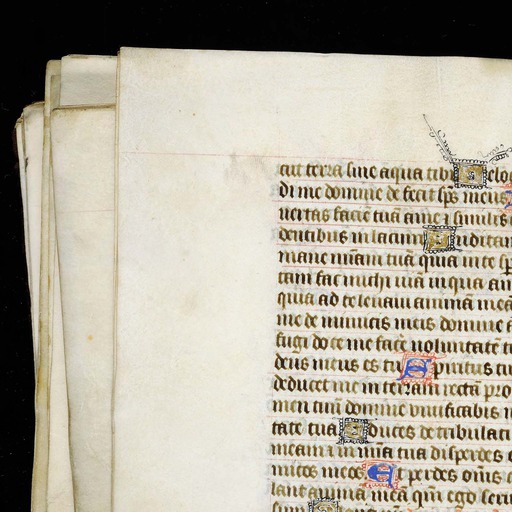 cut terra sine aqua tibi Velo
di me domine defecit sps meus
uertas facie tuā a me ⁊ similis
dentibus in lacum Auditam
mane miam tuā quia in te sp
tam fac michi uiā in qua am
quia ad te leuaui animā meā
me de inimicis meis domine a
fugi doce me facē uoluntatē t
deus meus es tu Spiritus tu
deducet me in terram rectā pro
men tuū domine uiuificabis m
tate tua Educes de tribulati
meam ⁊ in mīa tua disperdes
micos meos Et perdes oms
lant animā meā qm ego seru